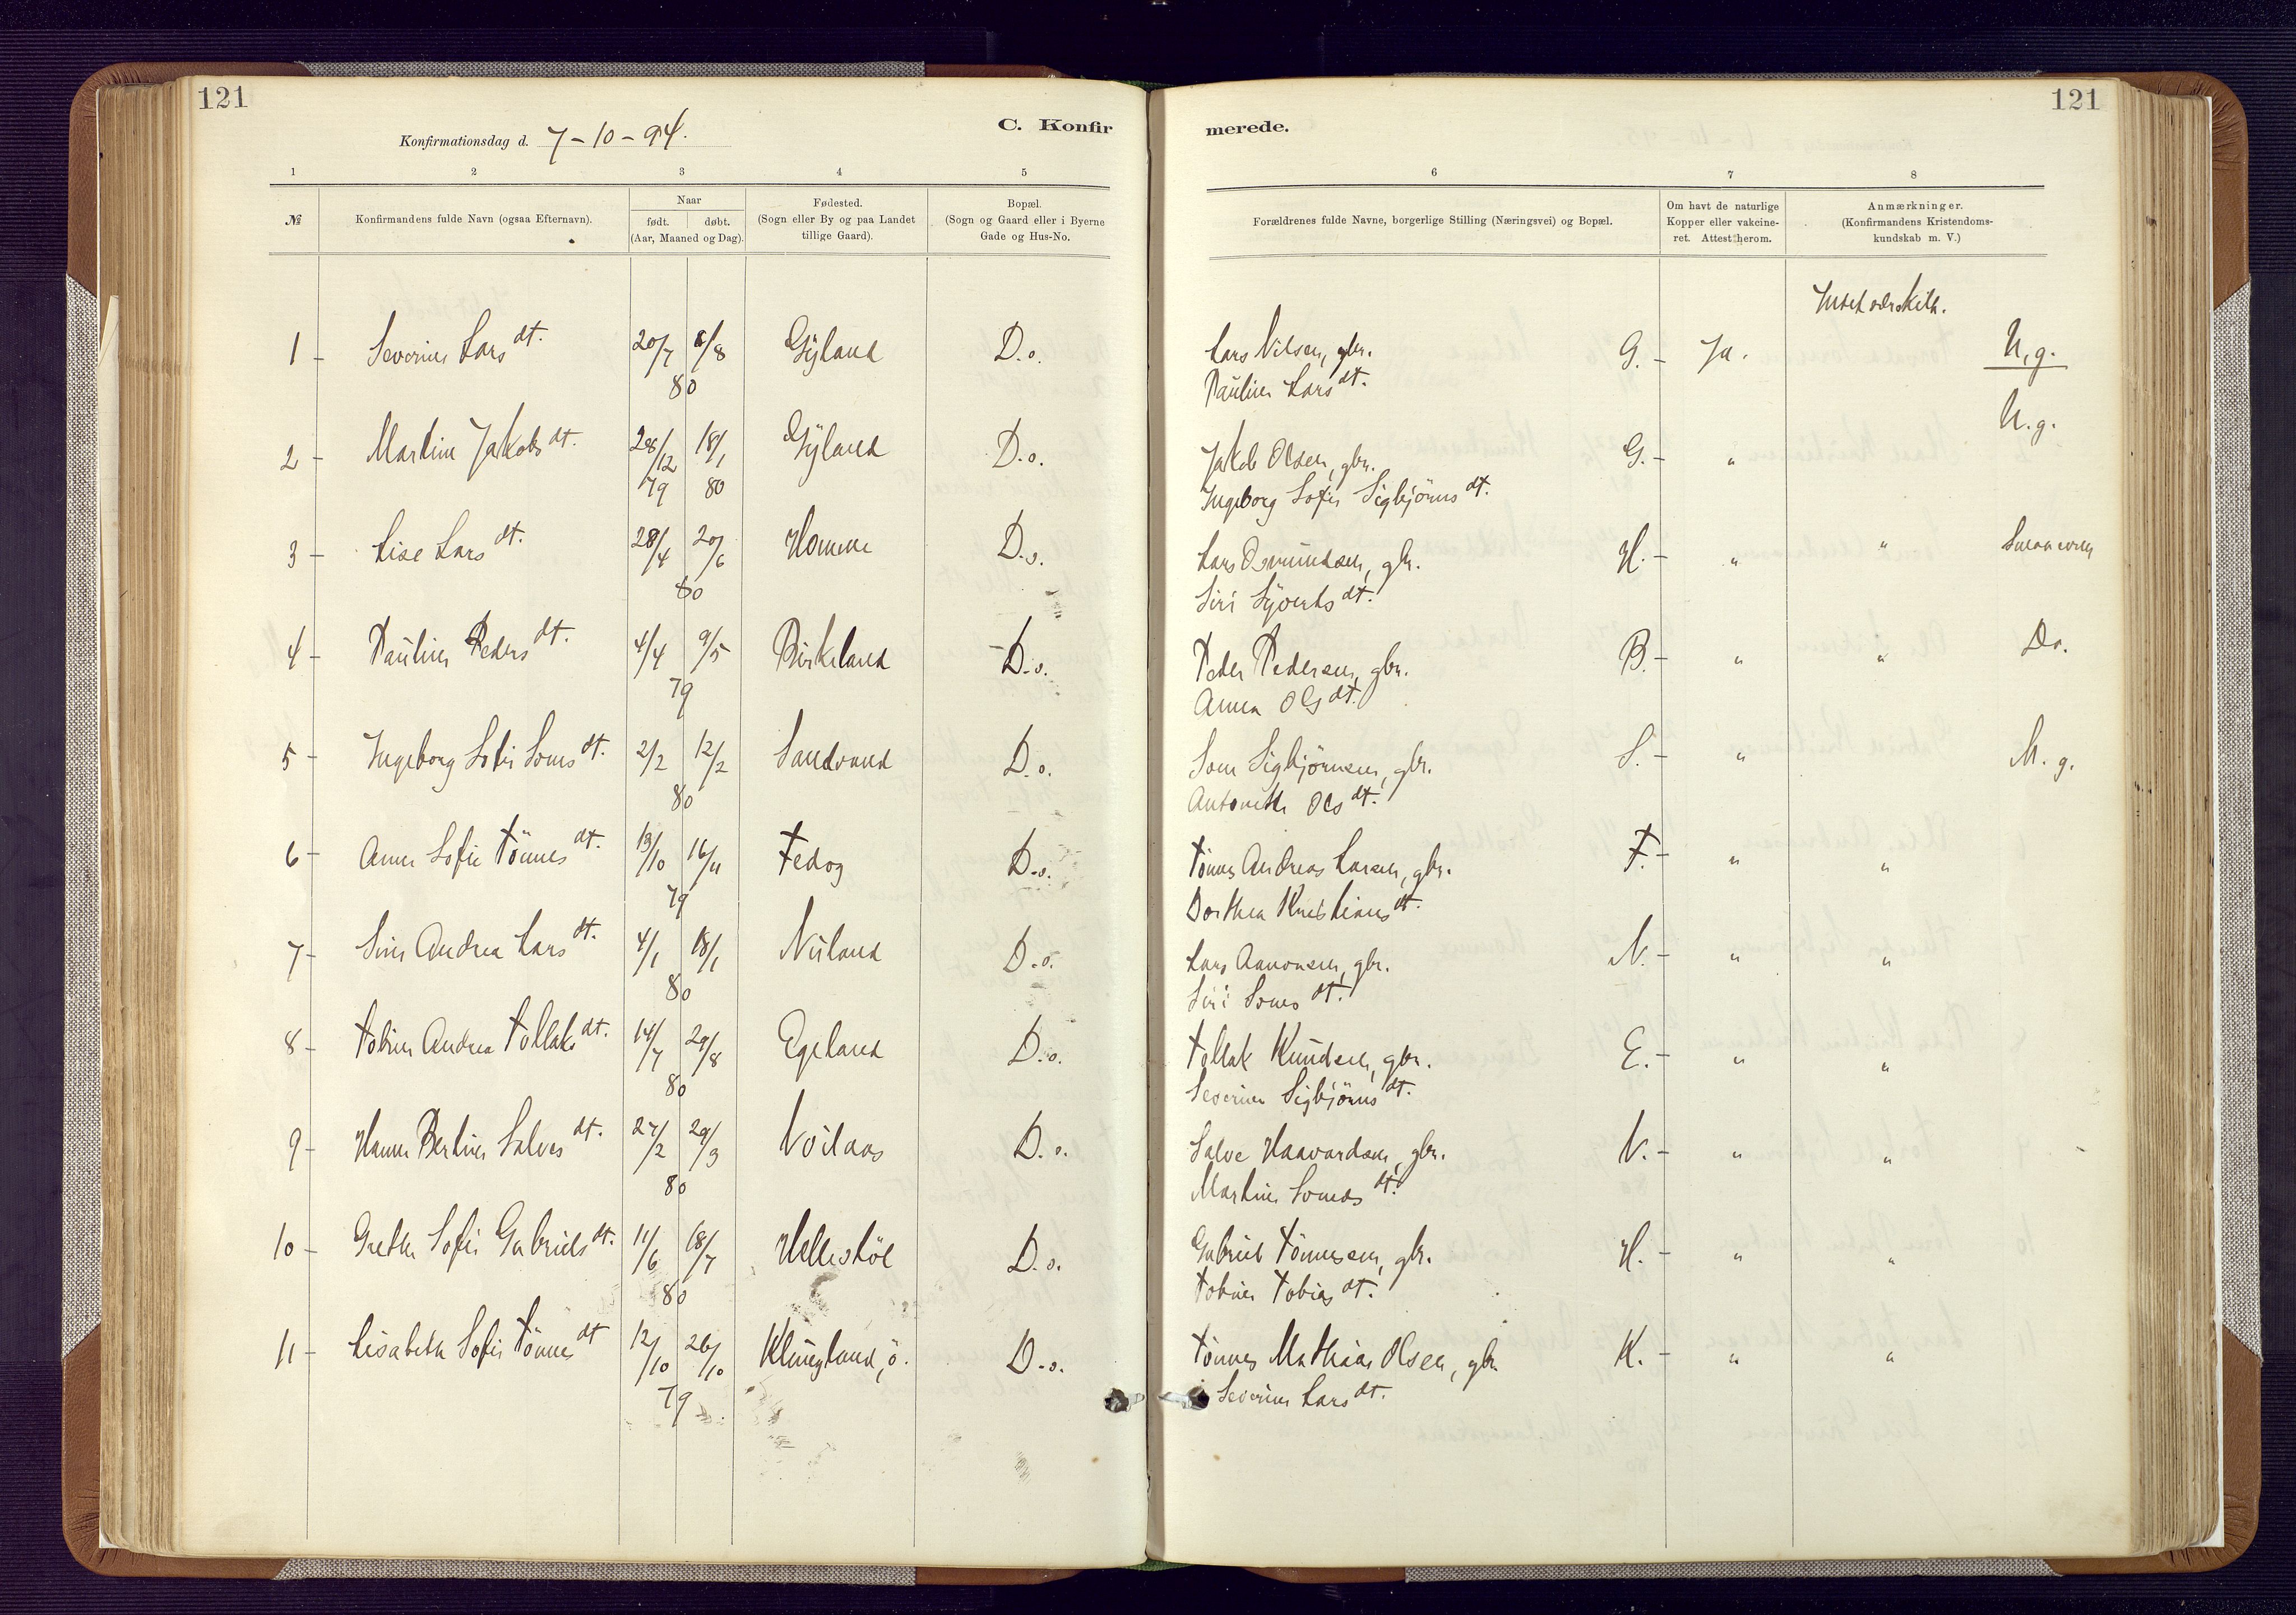 121
121
Konfirmationsdag d. 7-10-94.
C. Konfir
merede.
1 2 3 4 5
6 7 8
№
Konfirmandens fulde Navn (ogsaa Efternavn).
Naar
født. døbt.
(Aar, Maaned og Dag).
Fødested.
(Sogn eller By og paa Landet
tillige Gaard).
Bopæl.
(Sogn og Gaard eller i Byerne
Gade og Hus-No.
Forældrenes fulde Navne, borgerlige Stilling (Næringsvei) og Bopæl.
Om havt de naturlige
Kopper eller vakcine-
ret. Attest herom.
Anmærkninger.
(Konfirmandens Kristendoms-
kundskab m. V.)
1 - Severine Larsdt. 20/7 8/8 Gyland D.o. Lars Nilsen, gbr. G. - Ja. M.g.
80 Pauline Larsdt.
2 - Martine Jakobsdt. 28/12 18/1 Gyland D.o. Jakob Olsen, gbr. G. - " M.g.
79 80 Ingeborg Sofie Sigbjörnsdt.
3 - Lise Larsdt. 28/4 20/6 Homme D.o. Lars Osmundsen, gbr. H. - " "
80 Siri Syvertsdt.
4 - Pauline Pedersdt. 4/4 9/5 Birkeland D.o. Peder Pedersen, gbr. B. - " " Do.
79 Anna Olsdt.
5 - Ingeborg Sofie Sonesdt. 2/2 12/2 Sandvand D.o. Sone Sigbjörnsen, gbr. S. - " M.g.
80 Antonette Olsdt.
6 - Anne Sofie Tönnesdt. 13/10 16/11 Fedog D.o. Tönnes Andreas Larsen, gbr. F. - " "
79 Dorthea Kristiansdt.
7 - Sine Andrea Larsdt. 4/1 18/1 Nuland D.o. Lars Aanonsen, gbr. N. - " "
80 Siri Sonesdt.
8 - Tobine Andrea Tollaksdt. 14/7 29/8 Egeland D.o. Tollak Knudsen, gbr. E. - " "
80 Severine Sigbjörnsdt.
9 - Hanne Bertine Salvesdt. 27/2 29/3 D.o. Salve Haavardsen, gbr. N. - " "
80 Martine Sonesdt.
10 - Grethe Sofie Gabrielsdt. 11/6 18/7 Helleståt D.o. Gabriel Tönnesen, gbr. H. - " "
80 Tobine Tobiasdt.
11 - Lisabeth Sofie Tönnesdt 12/10 26/10 Klungland, ö. D.o. Tönnes Mathias Olsen, gbr. K. - " "
79 Severine Larsdt.